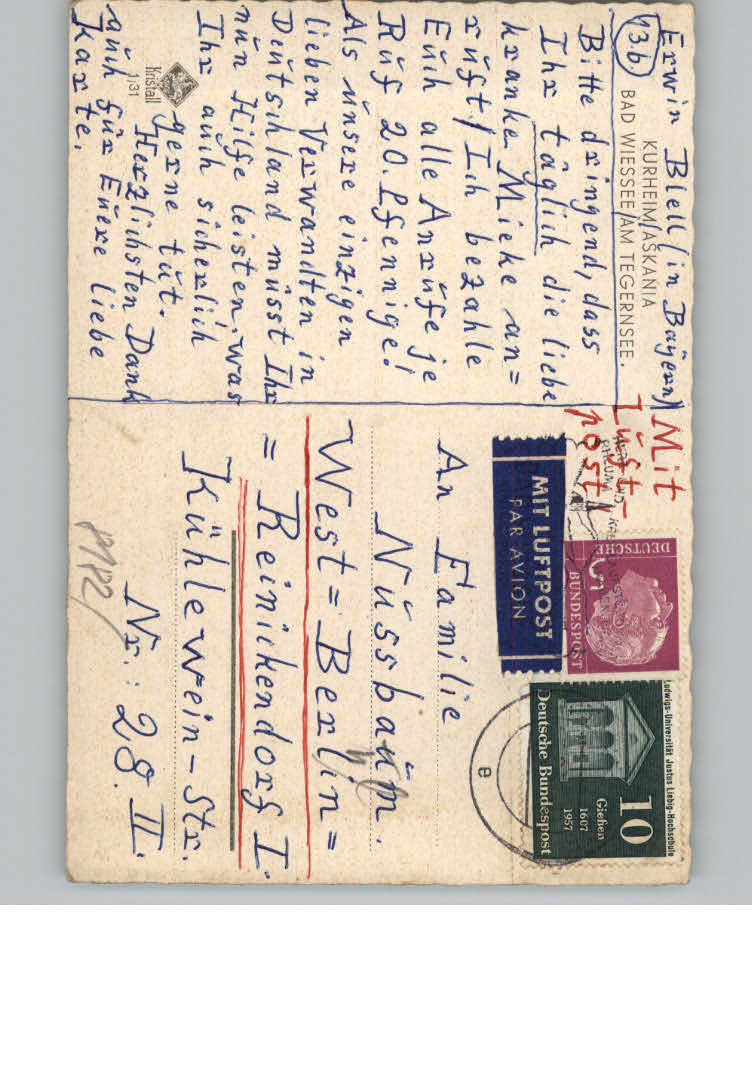 Erwin Blell/in Bayern)
KURHEIM/ASKANIA
13.b. BAD WIESSEE/AM TEGERNSEE.
Bitte dringend, dass
Ihr täglich die liebe
kranke Mieke an=
rüft/Ich bezahle
Eüch alle Anrüfe je
Rüf 20. Pfennige!
Als ünsere einzigen
lieben Verwandten in
Deütschland müsst Ihr
nün Hilfe leisten, was
Ihr aüch sicherlich
gerne tüt.
Herzlichsten Dank
aüch für Eüere liebe
Karte.
Kristall
1/31
Mit
Lüft-
post!
MIT LUFTPOST
PAR AVION
DEUTSCHE
BUNDESPOST
5
Ludwigs-Universität Justus Liebig-Hochschule
10
Gießen
1607
1957
Deutsche Bundespost
e
An Familie
Nüssbaüm.
West=Berlin=
=Reinickendorf I.
Kühlewein-Str.
Nr.: 28. II.